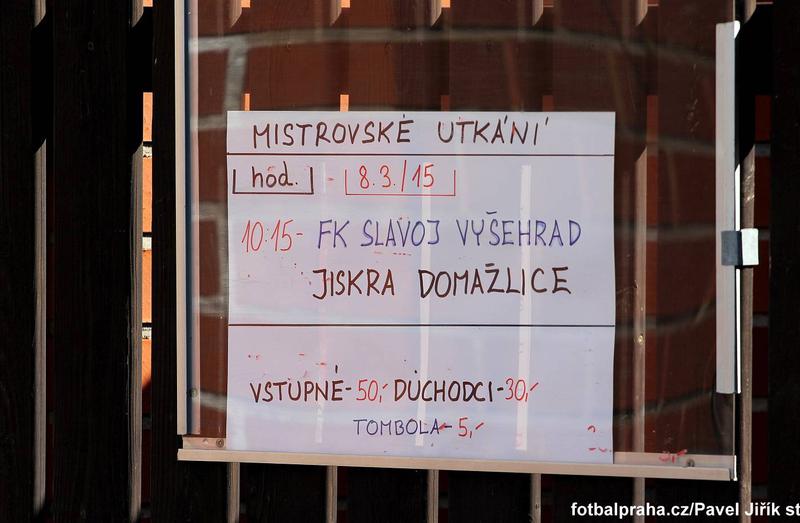 MISTROVSKÉ UTKÁNÍ
hod. - 8.3./15
10:15- FK SLAVOJ VYŠEHRAD
JISKRA DOMAŽLICE
VSTUPNÉ-50,- DŮCHODCI-30,-
TOMBOLA-5,-
fotbalpraha.cz/Pavel Jiřík st